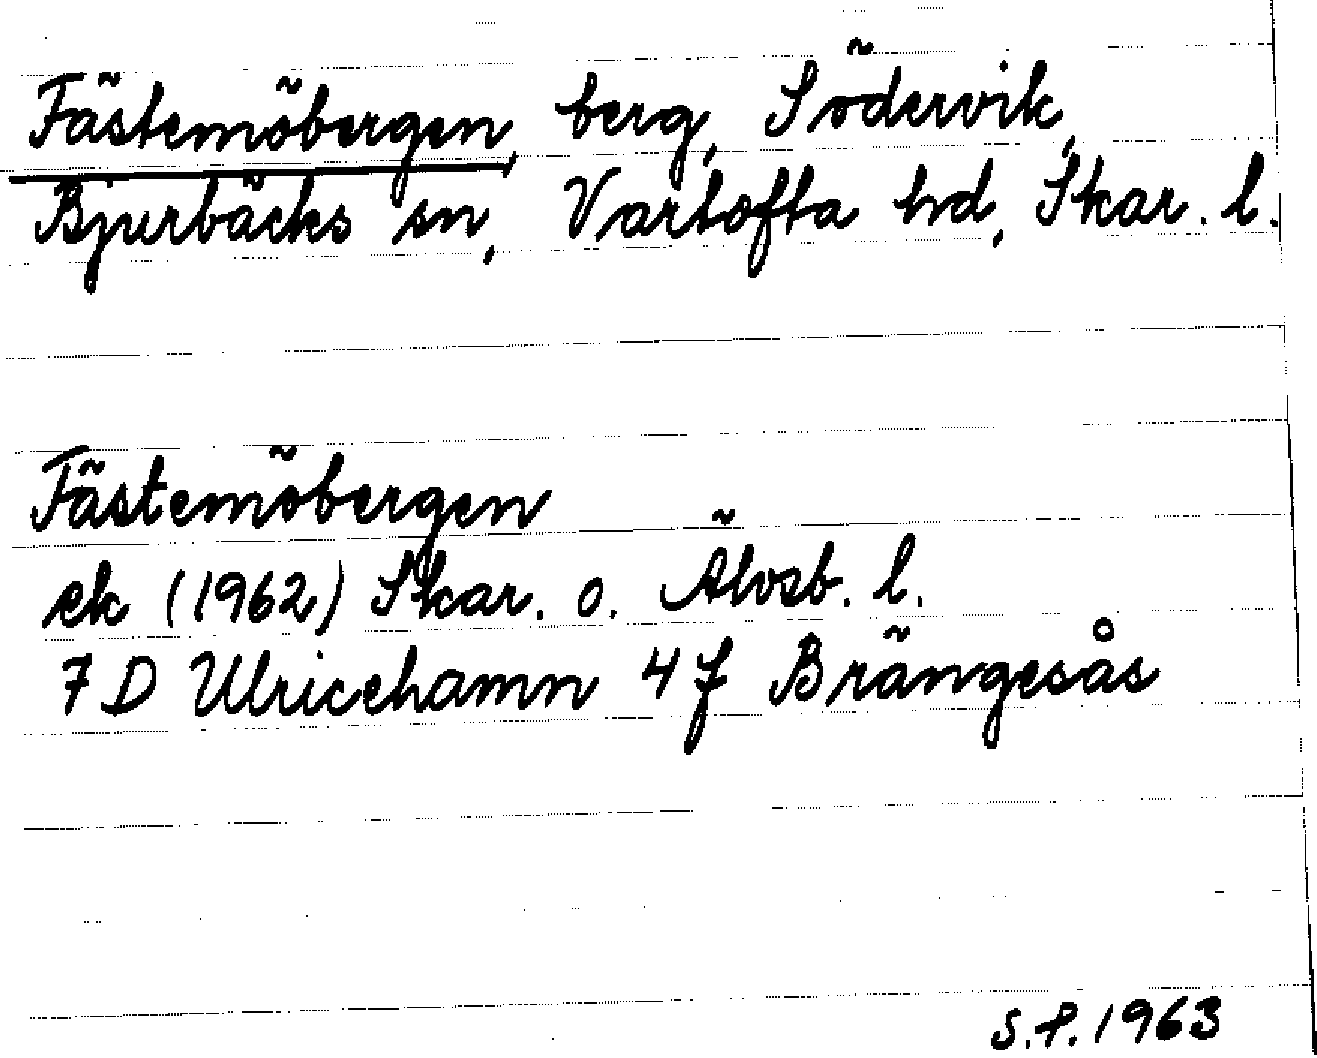 Fästemöbergen, berg, Södervik,
Bjurbäcks sn, Vartofta hd, Skar. l.
Fästemöbergen
ek (1962) Skar. o. Älvsb. l.
7 D Ulricehamn 4 f Brängesås
S.P. 1963